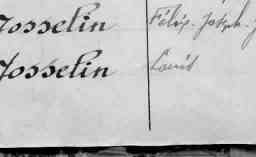 Josselin Félix-Joseph-J
Josselin Louis